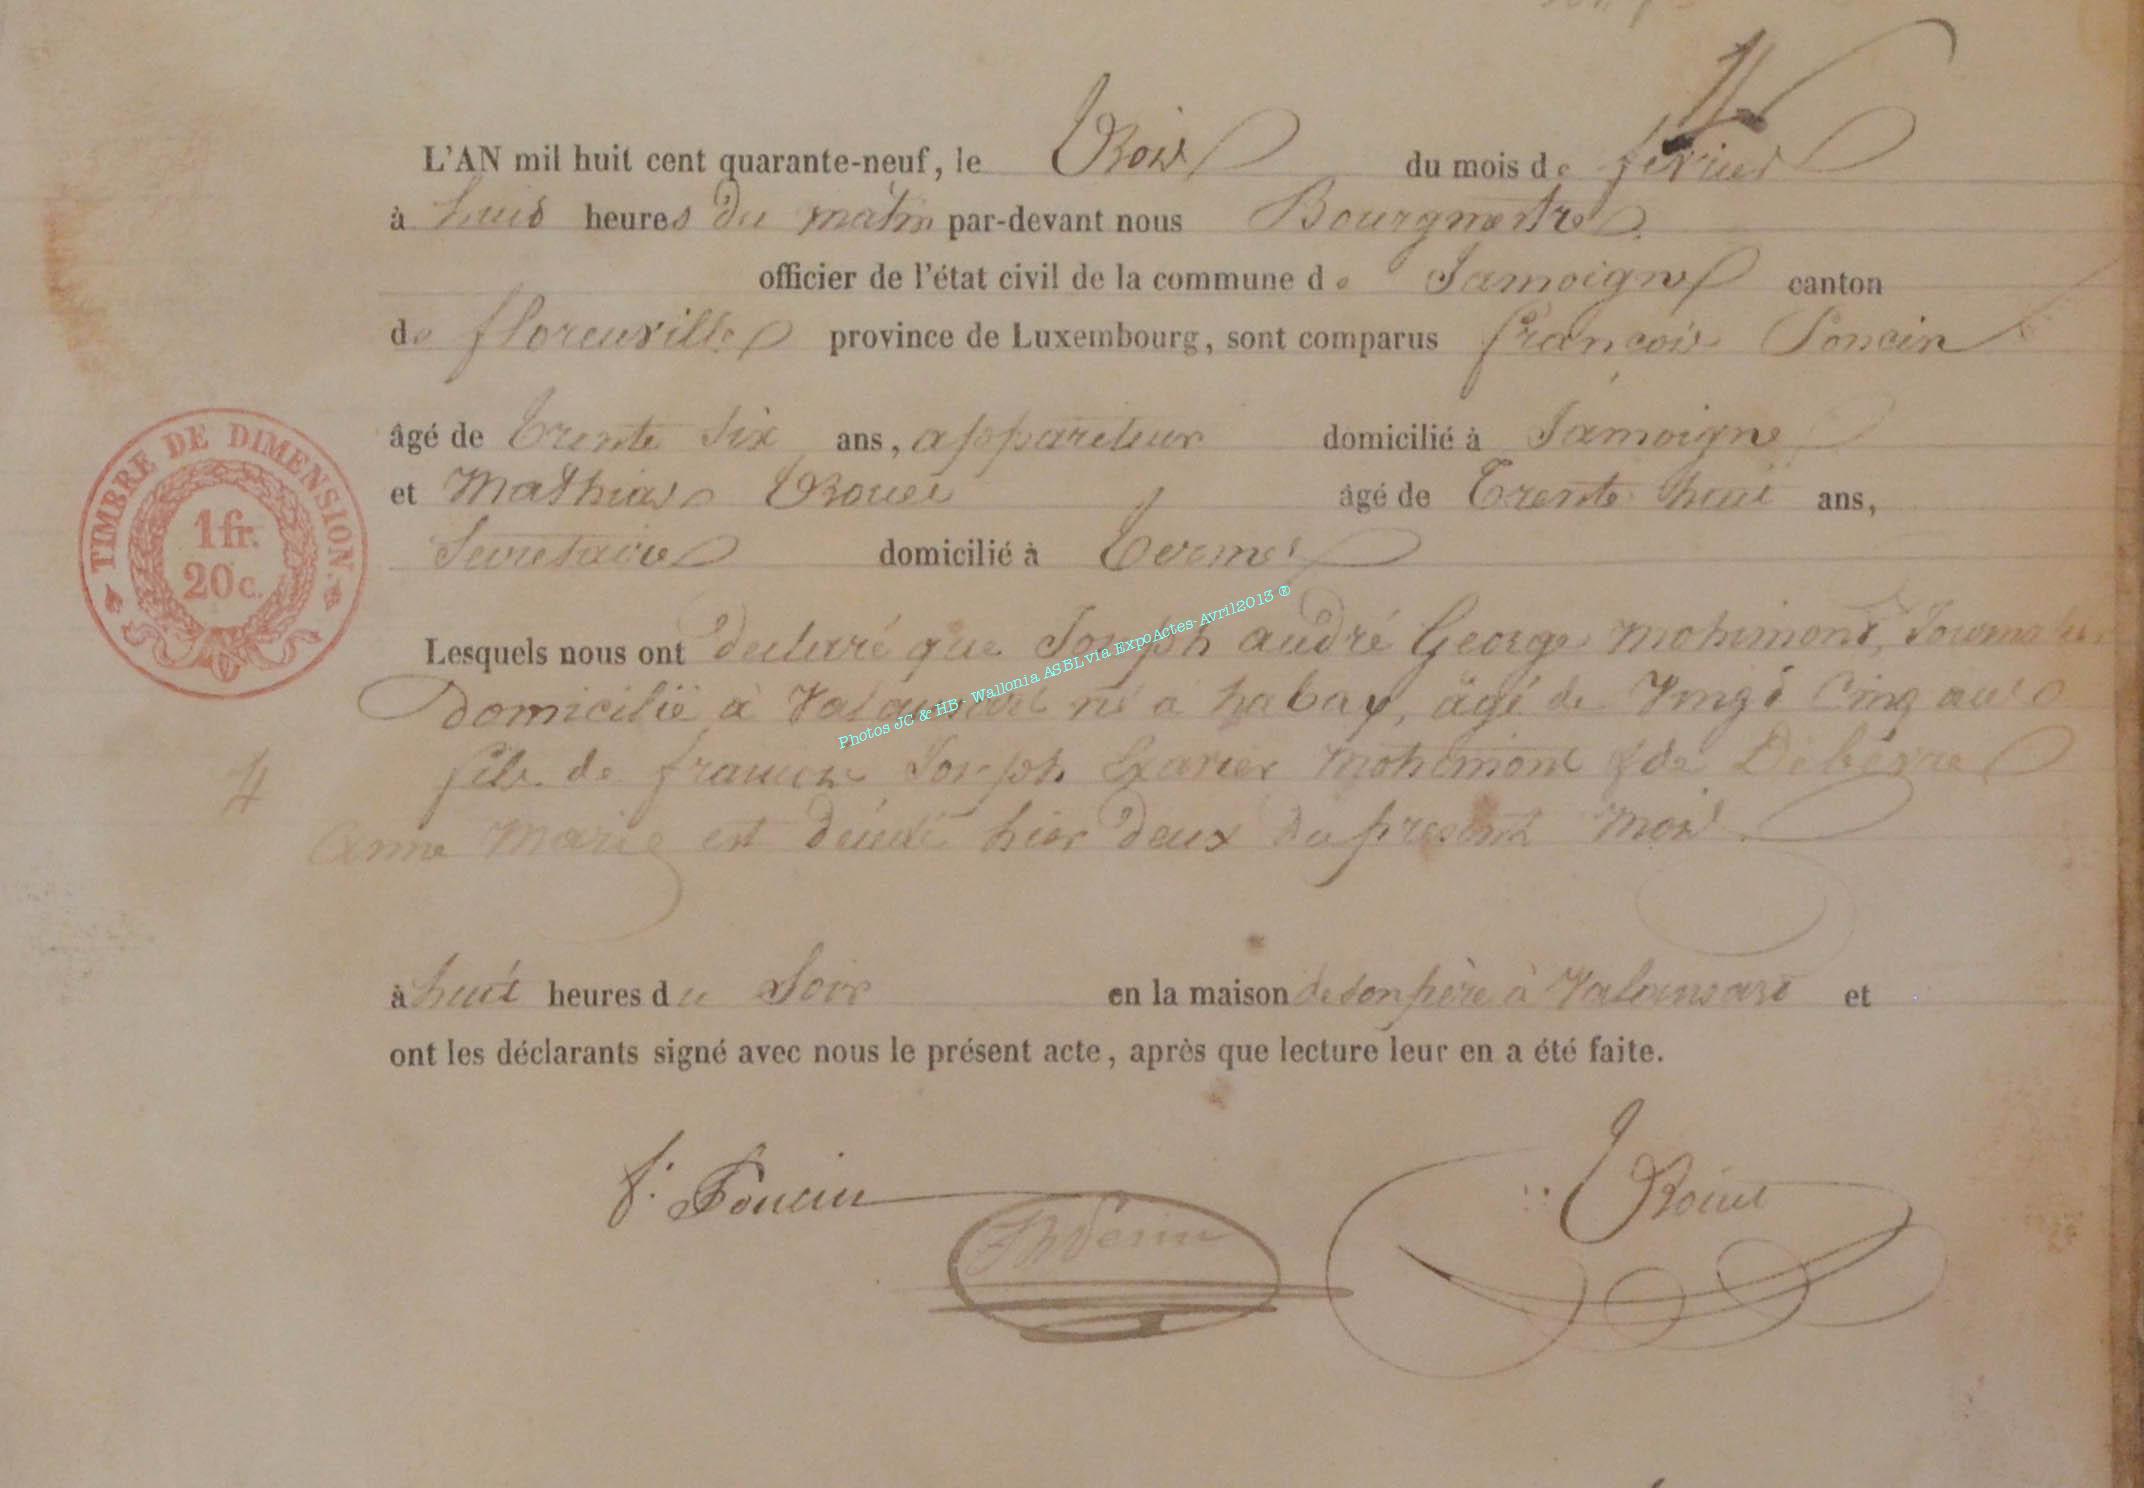 L'AN mil huit cent quarante-neuf, le Trois du mois de fevrier
à huit heures du matin par-devant nous Bourgmestre
officier de l'état civil de la commune de Jamoigne canton
de florenville province de Luxembourg, sont comparus françois Poncin
âgé de Trente Six ans, appariteur domicilié à Jamoigne
et Mathias âgé de Trente huit ans,
Secretaire domicilié à Termes
Lesquels nous ont declaré que Joseph andré George Mohimont,
Domicilié à Valansart né a habay, âgé de Vingt Cinq ans
fils de francois Joseph Xavier Mohimont & de
anne Marie est décédé hier deux du present Mois
à huit heures du Soir en la maison de son père à Valansart et
ont les déclarants signé avec nous le présent acte, après que lecture leur en a été faite.
f. Poncin
TIMBRE DE DIMENSION.
1 fr.
20 c.
4
Photos JC & HB - Wallonia ASBL via ExpoActes-Avril2013 ®